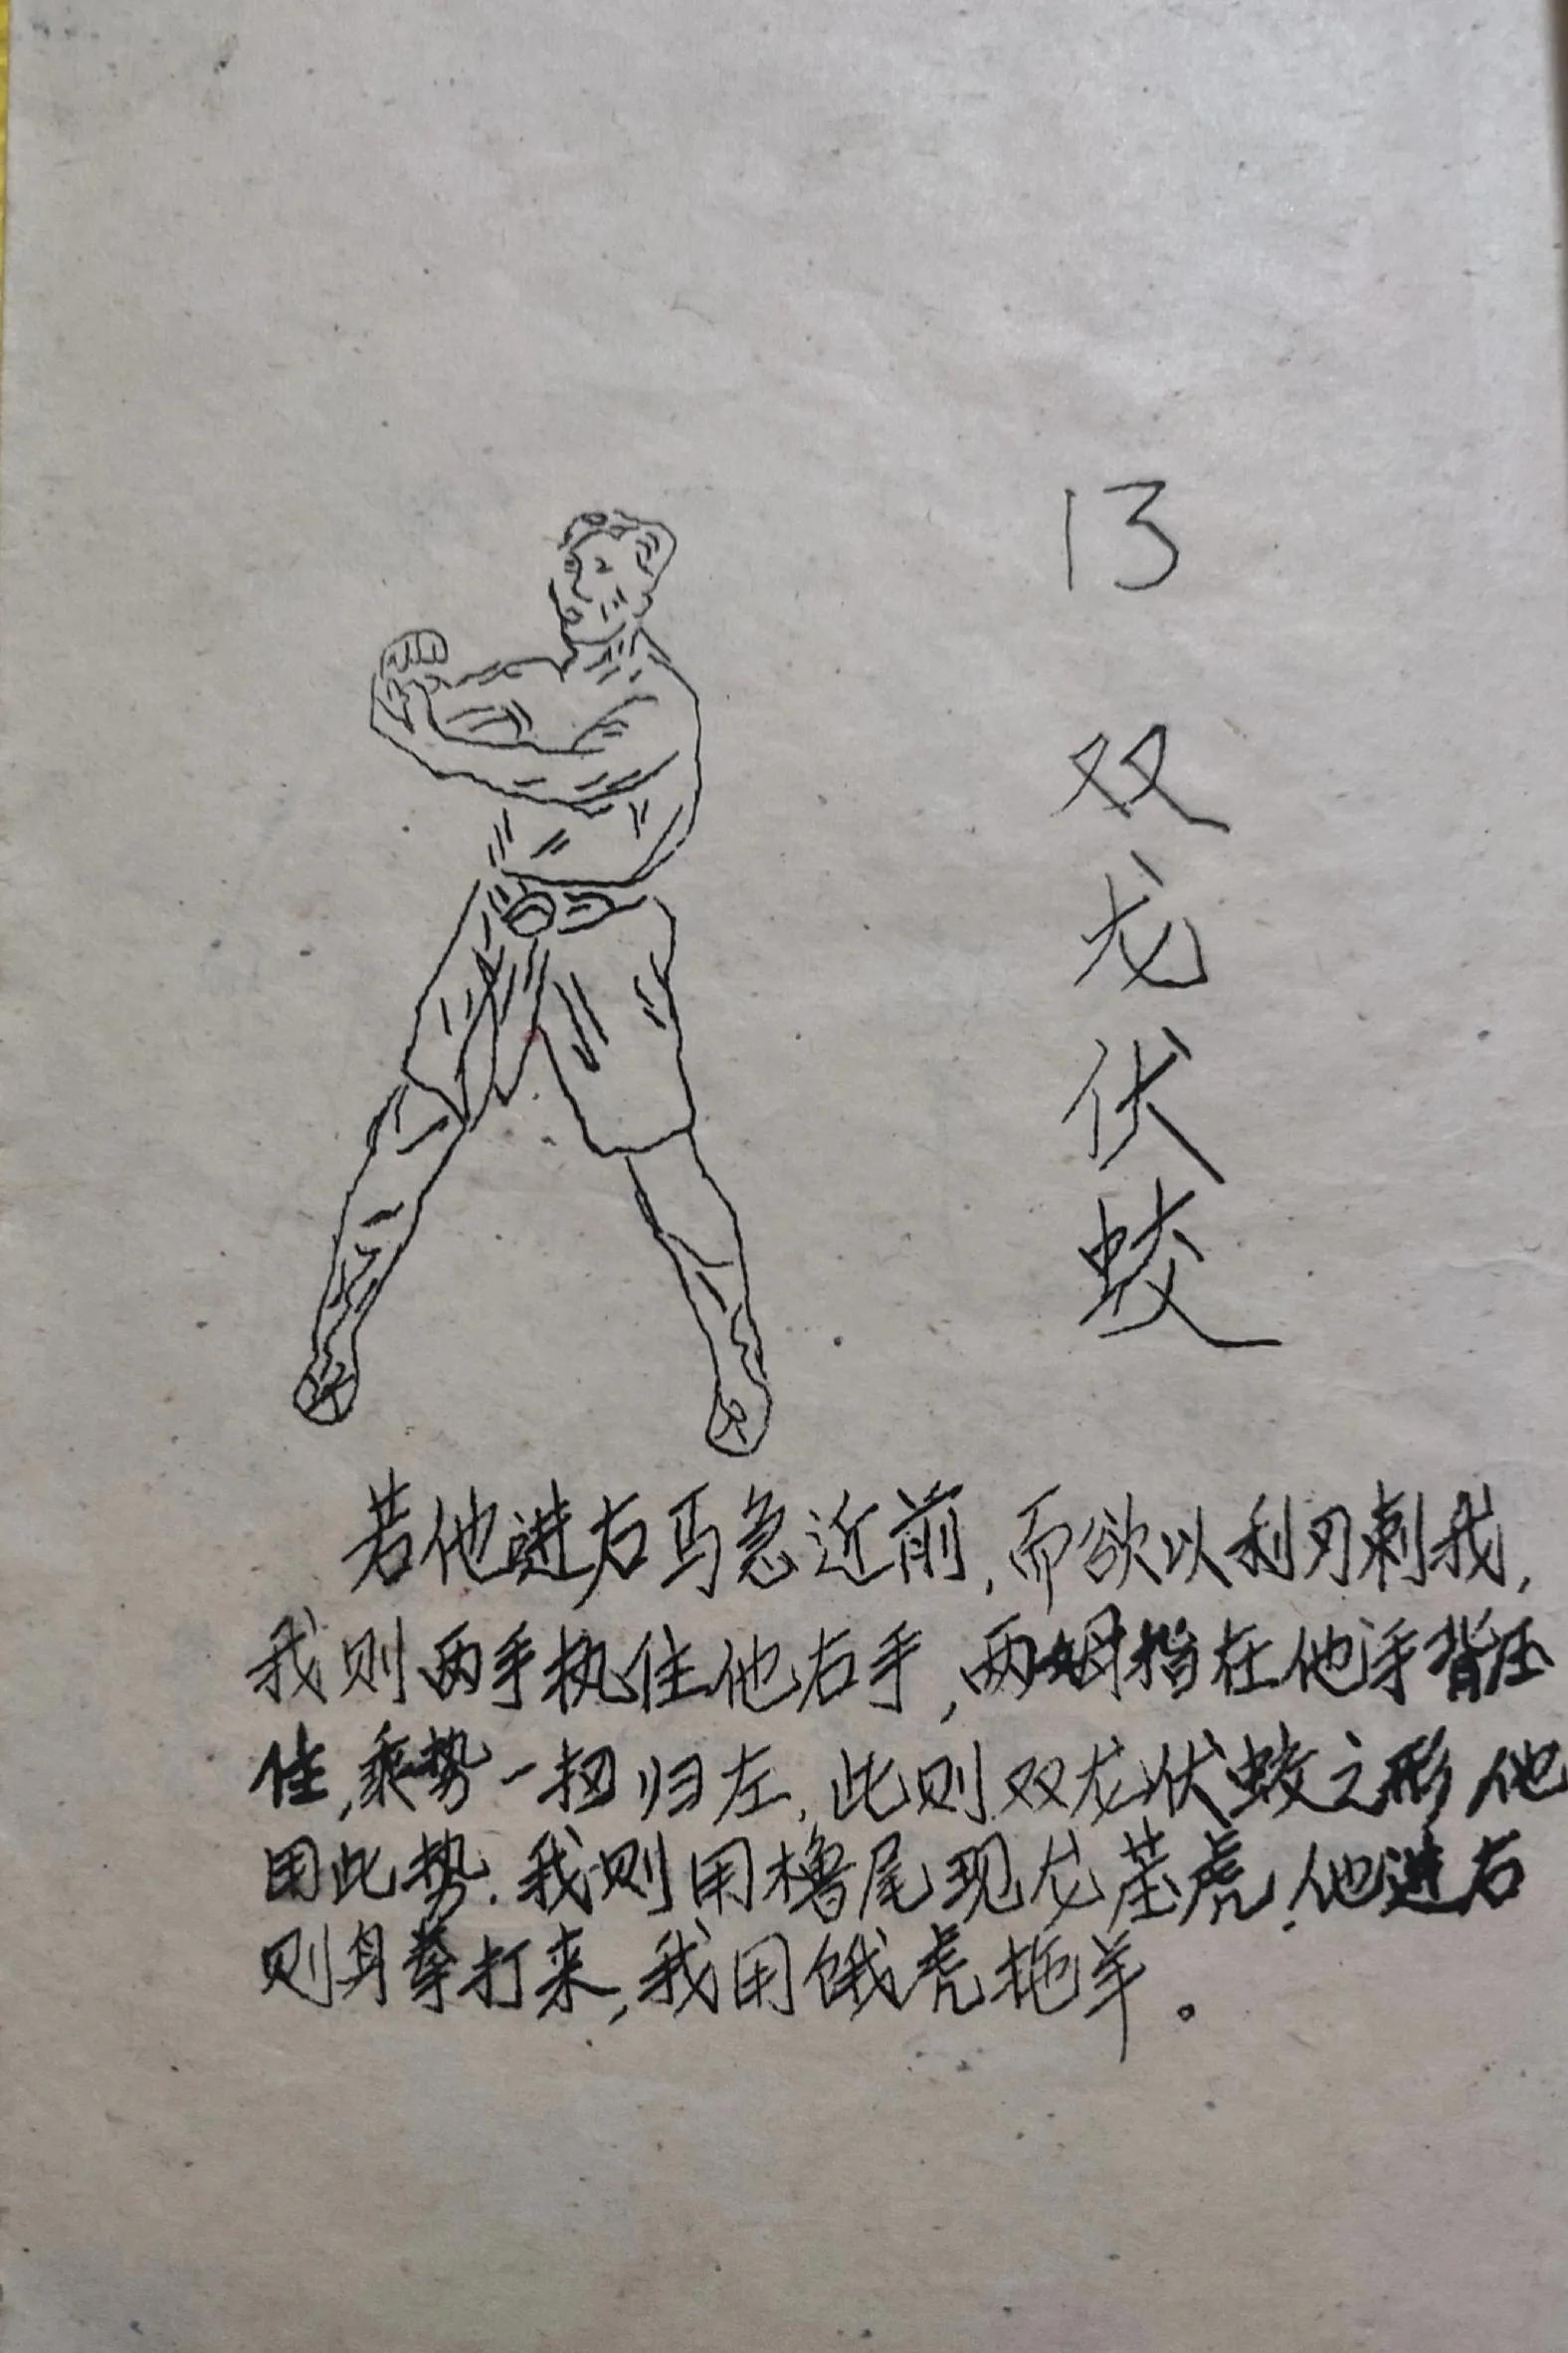 13
双龙伏蛟
若他进右马急近前，而欲以利刃刺我，
我则两手执住他右手，两姆指在他手背压
住，乘势一扭归左，此则双龙伏蛟之形他
用此势．我则用橹尾现龙 虎，他进右
则身拳打来，我用饿虎拖羊。